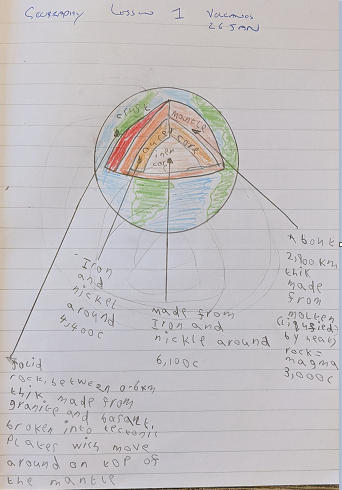 Geography Lesson 1 Volcanos
26 Jan
crust
mantle
outer
core
iner
core
About
2,900 km
thik
made
from
molten
(liquified
by heat)
rock =
magma
3,000c
Iron
and
nickel
around
4,400c
made from
Iron and
nickle around
6,100c
Solid
rock, between 0-6km
thik made from
granite and basalt,
broken into tectonic
Plates wich move
around on top of
the mantle